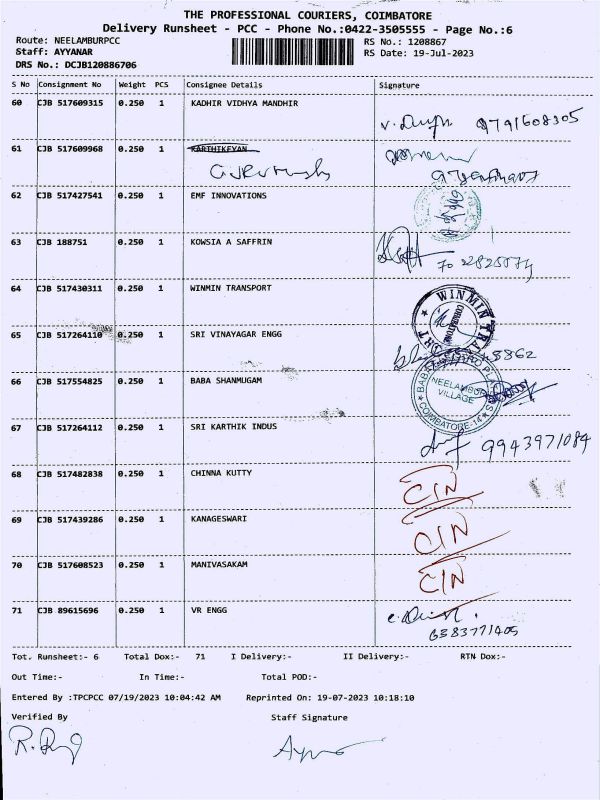 THE PROFESSIONAL COURIERS, COIMBATORE
Delivery Runsheet - PCC - Phone No.:0422-3505555 - Page No.:6
Route: NEELAMBURPCC RS No.: 1208867
Staff: AYYANAR RS Date: 19-Jul-2023
DRS No.: DCJB120886706
S No Consignment No Weight PCS Consignee Details Signature
60 CJB 517609315 0.250 1 KADHIR VIDHYA MANDHIR
9791608305
61 CJB 517609968 0.250 1 KARTHIKEYAN
62 CJB 517427541 0.250 1 EMF INNOVATIONS
63 CJB 188751 0.250 1 KOWSIA A SAFFRIN
64 CJB 517430311 0.250 1 WINMIN TRANSPORT
WINMIN TRANSPORT
COIMBATORE
65 CJB 517264110 0.250 1 SRI VINAYAGAR ENGG
66 CJB 517554825 0.250 1 BABA SHANMUGAM
NEELAMBUR
VILLAGE
COIMBATORE-14
67 CJB 517264112 0.250 1 SRI KARTHIK INDUS
9943971084
68 CJB 517482838 0.250 1 CHINNA KUTTY CIN
69 CJB 517439286 0.250 1 KANAGESWARI CIN
70 CJB 517608523 0.250 1 MANIVASAKAM CIN
71 CJB 89615696 0.250 1 VR ENGG
6383771405
Tot. Runsheet:- 6 Total Dox:- 71 I Delivery:- II Delivery:- RTN Dox:-
Out Time:- In Time:- Total POD:-
Entered By :TPCPCC 07/19/2023 10:04:42 AM Reprinted On: 19-07-2023 10:18:10
Verified By Staff Signature